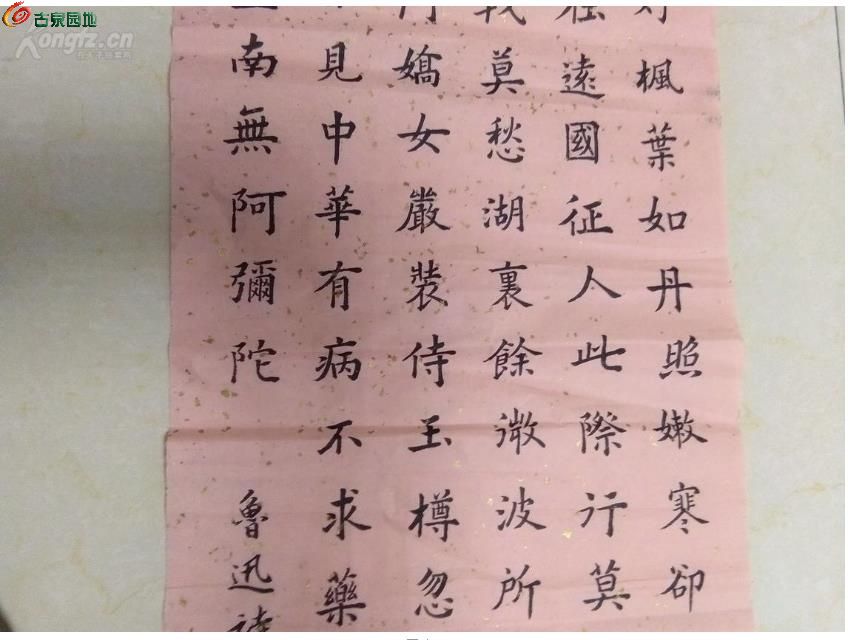 古泉园地
Kongfz.cn
楓葉如丹照嫩寒卻
遠國征人此際行莫
莫愁湖裏餘微波所
嬌女嚴裝侍玉樽忽
見中華有病不求藥
南無阿彌陀
魯迅